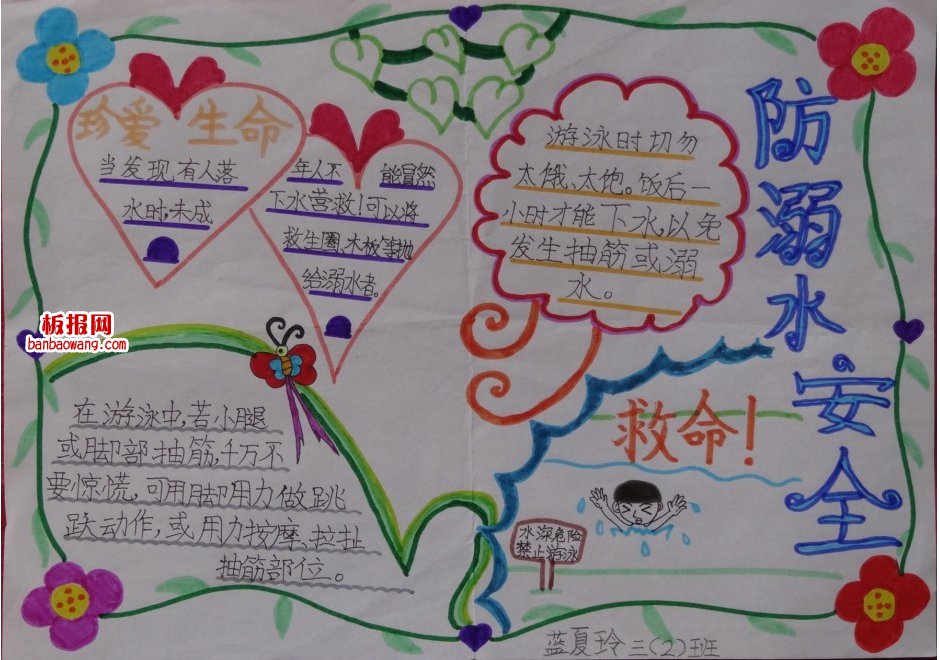 防溺水安全
珍爱生命
当发现有人落
水时,未成
年人不 能冒然
下水营救!可以将
救生圈、木板等抛
给溺水者。
游泳时切勿
太饿、太饱。饭后一
小时才能下水,以免
发生抽筋或溺
水。
板报网
banbaowang.com
在游泳中,若小腿
或脚部抽筋,千万不
要惊慌,可用脚用力做跳
跃动作,或用力按摩、拉扯
抽筋部位。
救命!
水深危险
禁止游泳
蓝夏玲 三(2)班